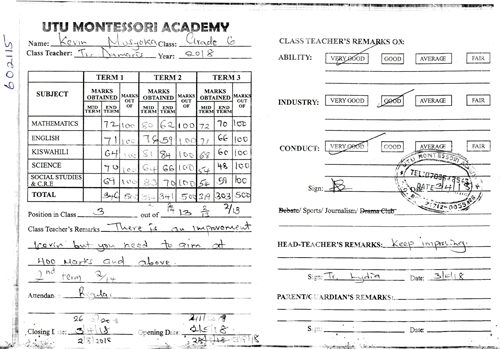 UTU MONTESSORI ACADEMY
Name: Kevin Musyoka Class: Grade 6
Class Teacher: Tr. Damaris Year: 2018
602115
TERM 1 TERM 2 TERM 3
SUBJECT MARKS OBTAINED MARKS OUT OF MARKS OBTAINED MARKS OUT OF MARKS OBTAINED MARKS OUT OF
MID TERM END TERM MID TERM END TERM MID TERM END TERM
MATHEMATICS 72 100 80 62 100 72 70 100
ENGLISH 71 100 78 59 100 71 66 100
KISWAHILI 64 100 81 84 100 68 60 100
SCIENCE 70 100 66 100 48 100
SOCIAL STUDIES & C.R.E 69 100 83 70 100 56 59 100
TOTAL 346 500 341 500 303 500
Position in Class 3 out of 13 3/13
Class Teacher's Remarks There is an improvement
Kevin but you need to aim at
400 marks and above.
2nd term 3/14
Attendan
Closing 3/4/18 Opening
2/8/2018
CLASS TEACHER'S REMARKS ON:
ABILITY: VERY GOOD GOOD AVERAGE FAIR
INDUSTRY: VERY GOOD GOOD AVERAGE FAIR
CONDUCT: VERY GOOD GOOD AVERAGE FAIR
UTU MONTESSORI
Sign: DATE 3/4/18
Debate/ Sports/ Journalism/ Drama Club
HEAD-TEACHER'S REMARKS: Keep improving.
Sign: Tr. Lydia Date: 3/4/18
PARENT/GUARDIAN'S REMARKS:
Sign: Date: